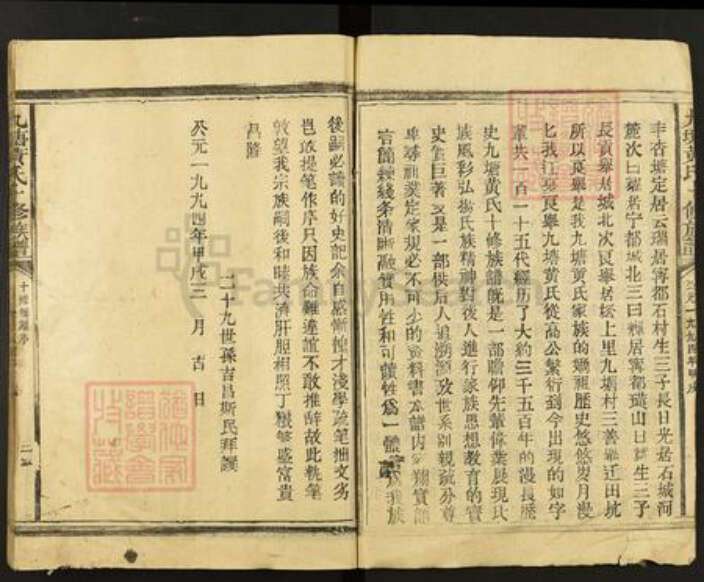 九塘黃氏十修族譜
丰杏塘定居云瑞居寧都石村生三子長日光居石城河
居宁都城北三曰輝居寧都璜山日生三子
長貢舉居城北次良舉居坛上里九塘村三善舉迁田坑
所以良舉是我九塘黄氏家族的嫡祖歷史悠悠岁月漫
匕我江夏良舉九塘黄氏從高公繁衍到今出現的如字
輩共一百一十五代經历了大約三千五百年的漫長歷
史九塘黄氏十修族譜既是一部瞻仰先輩偉業展現氏
族風彩弘揚氏族精神對後人進行家族思想教育的寶
史性巨著又是一部供后人追溯源攷世系别親疏分尊
卑尋祖業定家規必不可少的資料書本譜内容翔實語
言簡練綫条清晰融實用性和可讀性為一體是我族
後嗣必讀的好史記余自感慚惶才淺學疏笔拙文劣
岂敢提笔作序只因族命難違誼不敢推辞故此執筆
敦望我宗族嗣後和睦共濟肝胆相照丁粮够盛富貴
昌隆
二十九世孫吉昌斯民拜譔
公元一九九四年甲戌三月吉日
九塘黄氏十修族譜
FamilySearch